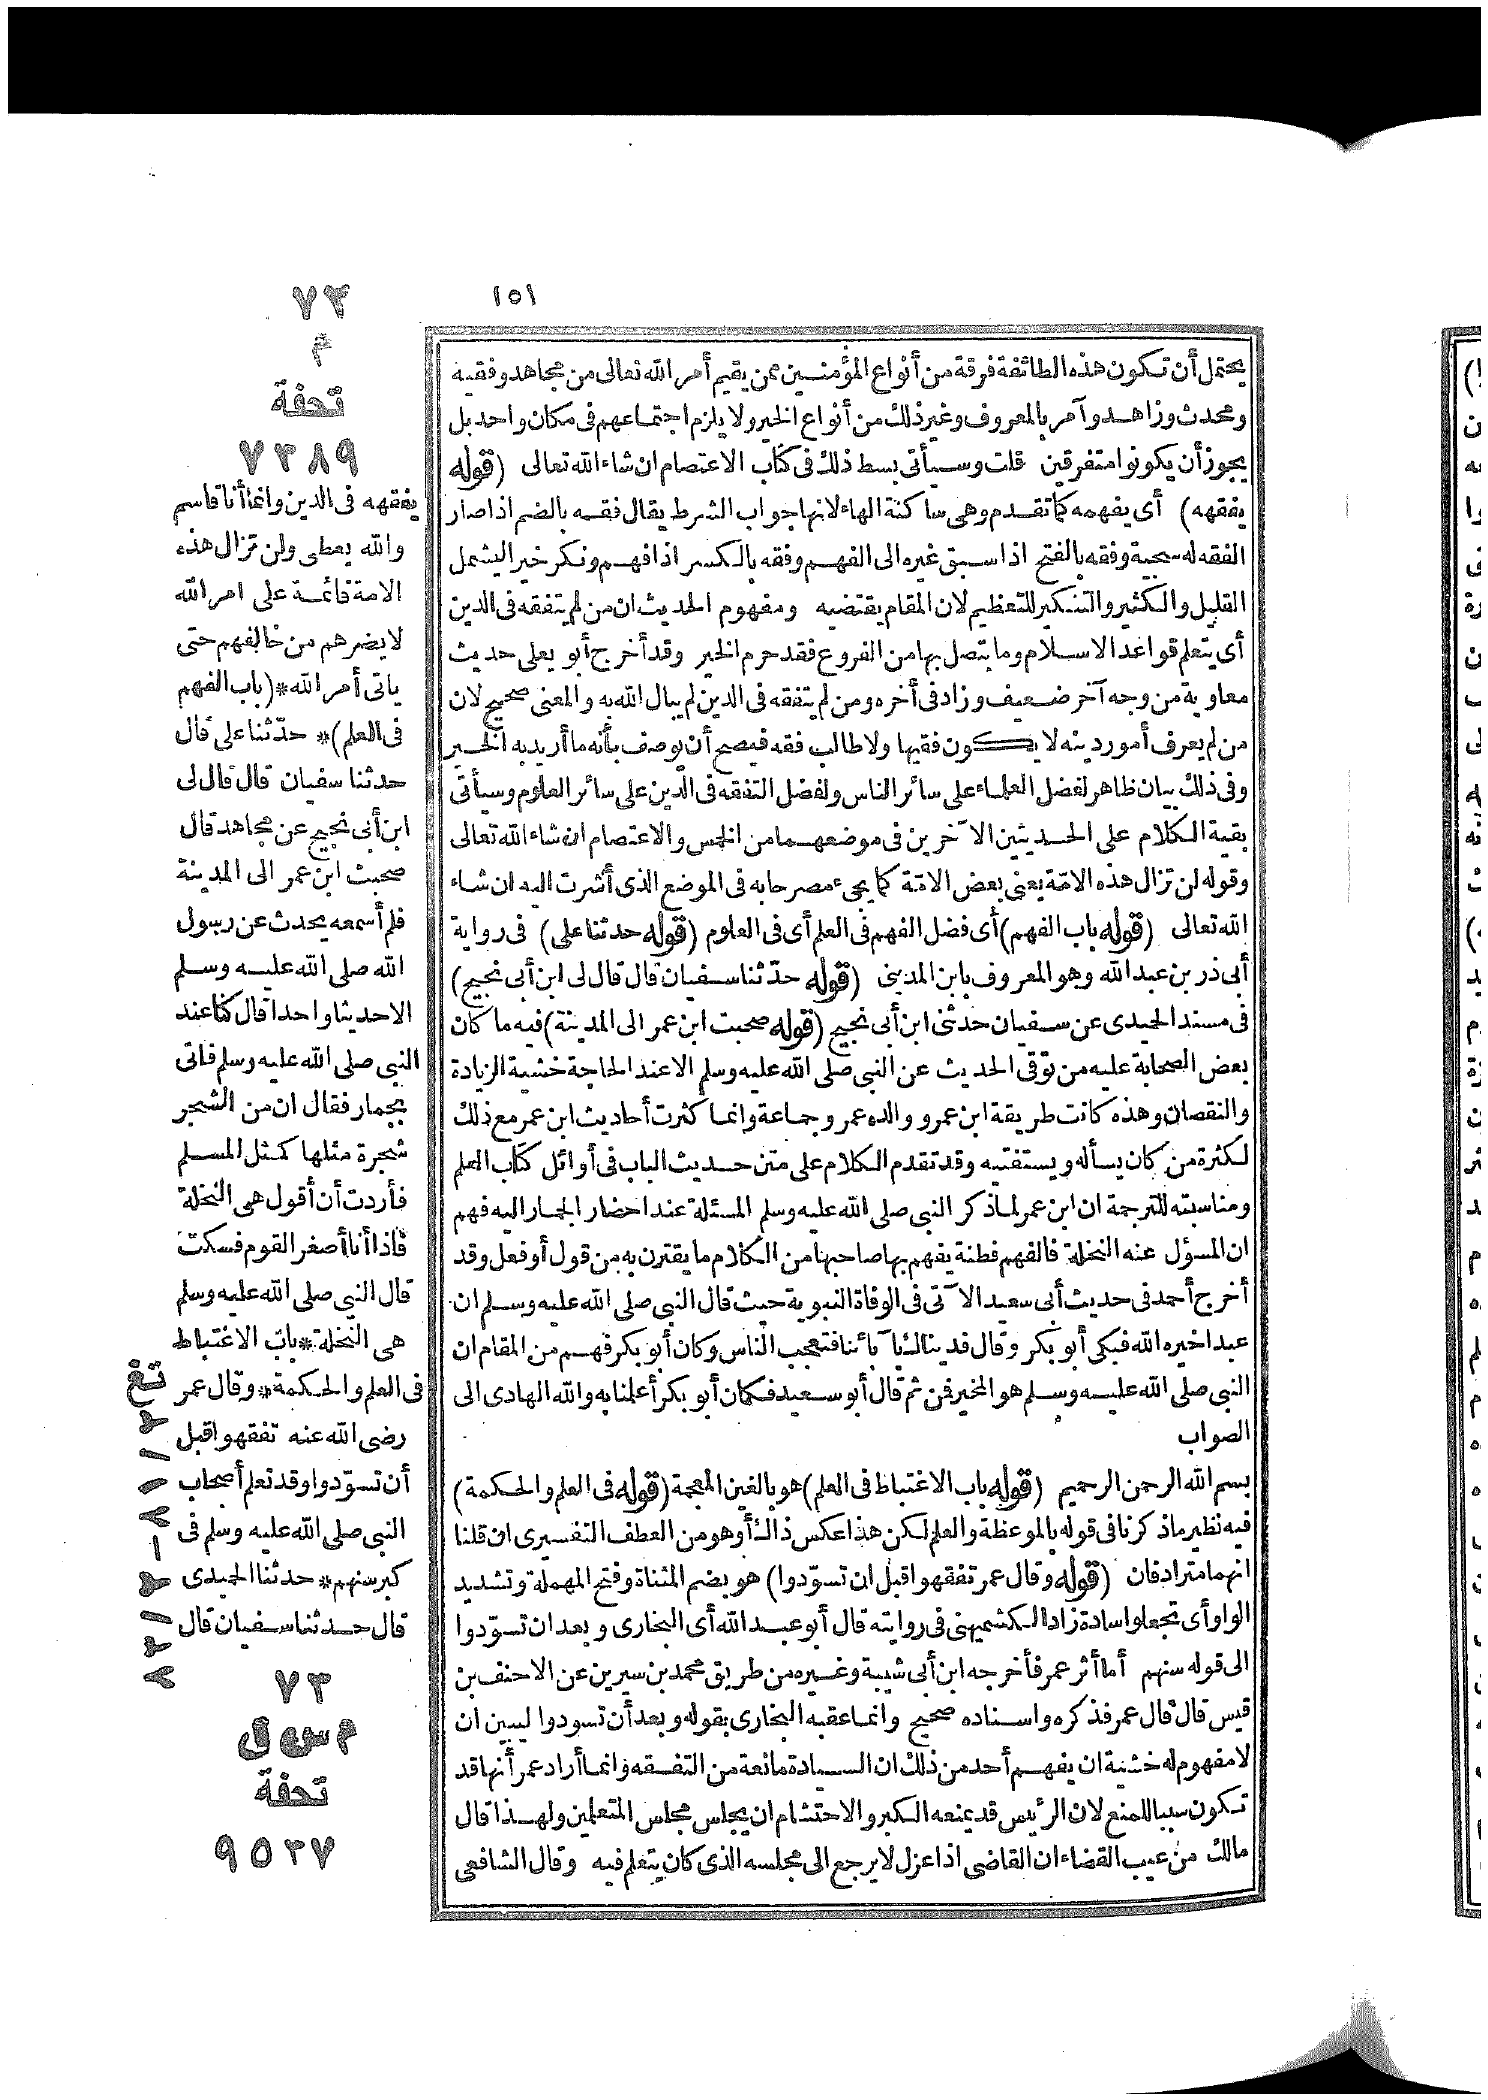 ١٥١
يحتمل أن تكون هذه الطائفة فرقة من أنواع المؤمنين ممن يقيم أمر الله تعالى من مجاهد وفقيه
ومحدث وزاهد وآمر بالمعروف وغير ذلك من أنواع الخير ولا يلزم اجتماعهم فى مكان واحد بل
يجوز أن يكونوا متفرقين قلت وسيأتى بسط ذلك فى كتاب الاعتصام ان شاء الله تعالى (قوله
يفقهه) أى يفهمه كما تقدم وهى ساكنة الهاء لانها جواب الشرط يقال فقه بالضم اذا صار
الفقه له سجية وفقه بالفتح اذا سبق غيره الى الفهم وفقه بالكسر اذا فهم ونكر خيرا ليشمل
القليل والكثير والتنكير للتعظيم لان المقام يقتضيه ومفهوم الحديث ان من لم يتفقه فى الدين
أى يتعلم قواعد الاسلام وما يتصل بها من الفروع فقد حرم الخير وقد أخرج أبو يعلى حديث
معاوية من وجه آخر ضعيف وزاد فى أخره ومن لم يتفقه فى الدين لم يبال الله به والمعنى صحيح لان
من لم يعرف أمور دينه لا يكون فقيها ولا طالب فقه فيصح أن يوصف بأنه ما أريد به الخير
وفى ذلك بيان ظاهر لفضل العلماء على سائر الناس ولفضل التفقه فى الدين على سائر العلوم وسيأتى
بقية الكلام على الحديثين الآخرين فى موضعهما من الخمس والاعتصام ان شاء الله تعالى
وقوله لن تزال هذه الامّة يعنى بعض الامّة كما يجىء مصرحا به فى الموضع الذى أشرت اليه ان شاء
الله تعالى (قوله باب الفهم) أى فضل الفهم فى العلم أى فى العلوم (قوله حدثنا على) فى رواية
أبى ذر بن عبد الله وهو المعروف بابن المدينى (قوله حدّثنا سفيان قال قال لى ابن أبى نجيح)
فى مسند الحميدى عن سفيان حدثنى ابن أبى نجيح (قوله صحبت ابن عمر الى المدينة) فيه ما كان
بعض الصحابة عليه من توقى الحديث عن النبى صلى الله عليه وسلم الا عند الحاجة خشية الزيادة
والنقصان وهذه كانت طريقة ابن عمر ووالده عمر وجماعة وانما كثرت أحاديث ابن عمر مع ذلك
لكثرة من كان يسأله ويستفتيه وقد تقدم الكلام على متن حديث الباب فى أوائل كتاب العلم
ومناسبته للترجمة ان ابن عمر لما ذكر النبى صلى الله عليه وسلم المسئلة عند احضار الجمار اليه فهم
ان المسؤل عنه النخلة فالفهم فطنة يفهم بها صاحبها من الكلام ما يقترن به من قول أو فعل وقد
أخرج أحمد فى حديث أبى سعيد الآتى فى الوفاة النبوية حيث قال النبى صلى الله عليه وسلم ان
عبدا خيره الله فبكى أبو بكر وقال فديناك بآبائنا فتعجب الناس وكان أبو بكر فهم من المقام ان
النبى صلى الله عليه وسلم هو المخير فمن ثم قال أبو سعيد فكان أبو بكر أعلمنا به والله الهادى الى
الصواب
بسم الله الرحمن الرحيم (قوله باب الاغتباط فى العلم) هو بالغين المعجمة (قوله فى العلم والحكمة)
فيه نظير ما ذكرنا فى قوله بالموعظة والعلم لكن هذا عكس ذاك أو هو من العطف التفسيرى ان قلنا
انهما مترادفان (قوله وقال عمر تفقهوا قبل ان تسوّدوا) هو بضم المثناة وفتح المهملة وتشديد
الواو أى تجعلوا سادة زاد الكشميهنى فى روايته قال أبو عبد الله أى البخارى وبعد ان تسوّدوا
الى قوله سنهم أما أثر عمر فأخرجه ابن أبى شيبة وغيره من طريق محمد بن سيرين عن الاحنف بن
قيس قال قال عمر فذكره واسناده صحيح وانما عقبه البخارى بقوله وبعد أن تسودوا ليبين ان
لا مفهوم له خشية ان يفهم أحد من ذلك ان السيادة مانعة من التفقه وانما أراد عمر أنها قد
تكون سببا للمنع لان الرئيس قد يمنعه الكبر والاحتشام ان يجلس مجلس المتعلمين ولهذا قال
مالك من عيب القضاء ان القاضى اذا عزل لا يرجع الى مجلسه الذى كان يتعلم فيه وقال الشافعى
٧٢
م
تحفة
٧٢٨٩
يفقهه فى الدين وانما أنا قاسم
والله يعطى ولن تزال هذه
الامة قائمة على امر الله
لا يضرهم من خالفهم حتى
ياتى أمر الله *(باب الفهم
فى العلم)* حدّثنا على قال
حدثنا سفيان قال قال لى
ابن أبى نجيح عن مجاهد قال
صحبت ابن عمر الى المدينة
فلم أسمعه يحدث عن رسول
الله صلى الله عليه وسلم
الا حديثا واحدا قال كنا عند
النبى صلى الله عليه وسلم فاتى
بجمار فقال ان من الشجر
شجرة مثلها كمثل المسلم
فأردت أن أقول هى النخلة
فاذا أنا أصغر القوم فسكت
قال النبى صلى الله عليه وسلم
هى النخلة *باب الاغتباط
فى العلم والحكمة* وقال عمر
رضى الله عنه تفقهوا قبل
أن تسوّدوا وقد تعلم أصحاب
النبى صلى الله عليه وسلم فى
كبر سنهم* حدثنا الحميدى
قال حدثنا سفيان قال
تغ
٧٣
م س ق
تحفة
٩٥٣٧